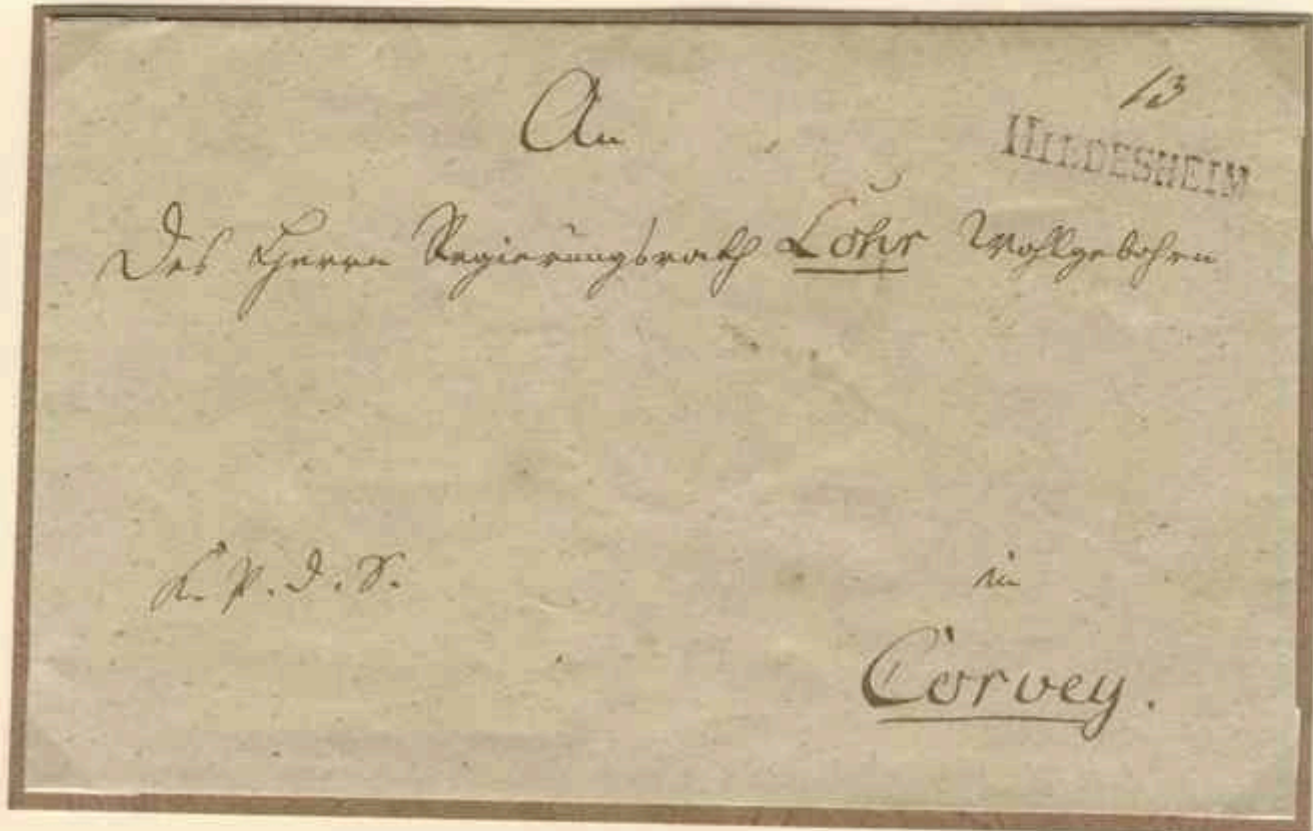 An
13
HILDESHEIM
Des Herrn Regierungsrath Löhr Wohlgebohrn
in
Corvey.